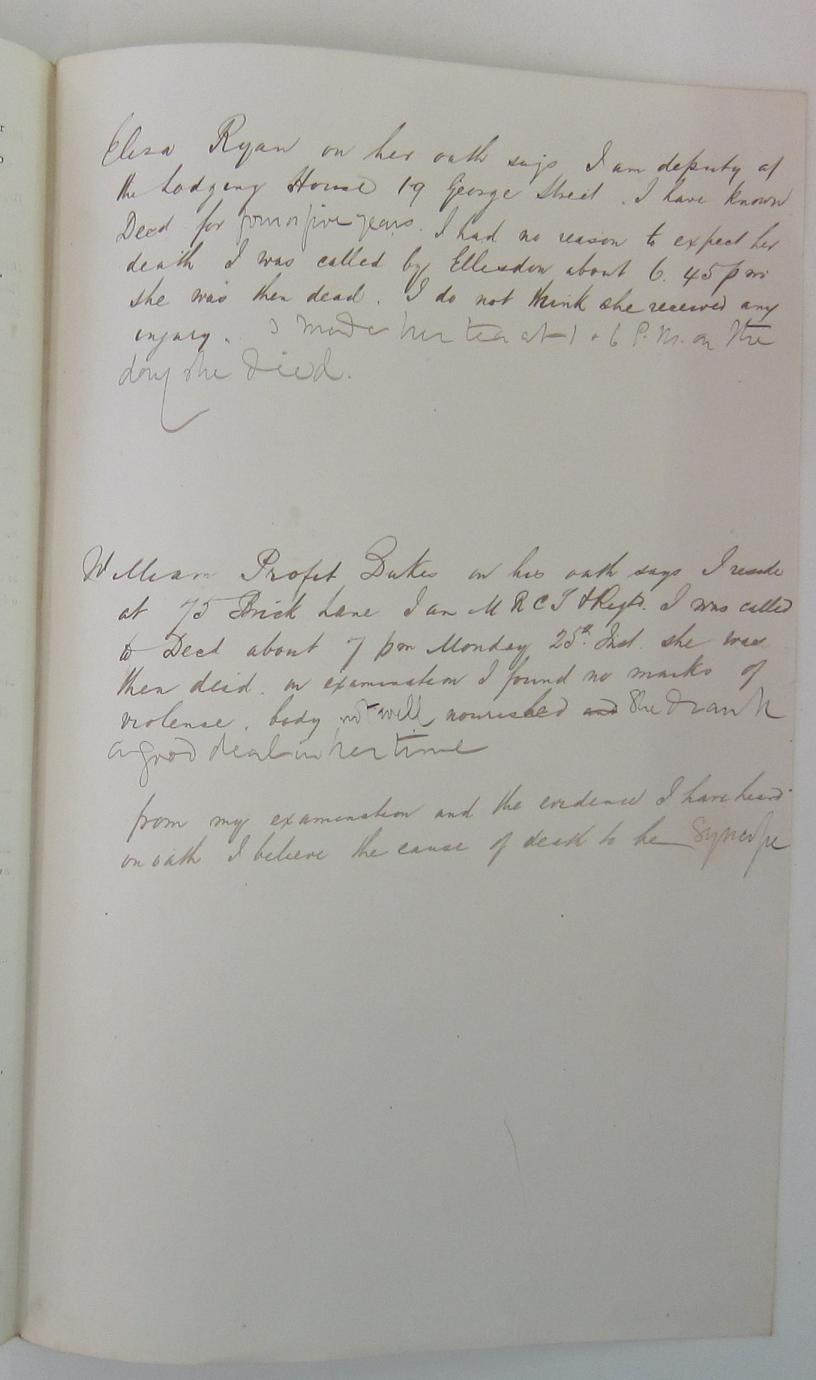 Eliza Ryan on her oath says I am deputy at
the Lodging House 19 George Street. I have known
Decd for four or five years. I had no reason to expect her
death I was called by Ellisdon about 6.45 pm
she was then dead. I do not think she received any
injury. I made her tea at 1 & 6 P.M. on the
day she died.
William Profit Dukes on his oath says I reside
at 75 Brick Lane I am M R C S & Regtd. I was called
to Decd about 7 pm Monday 25th Inst. she was
then dead. on examination I found no marks of
violense. body not well nourished and She drank
a good deal in her time
from my examination and the evidence I have heard
on oath I believe the cause of death to be Syncope